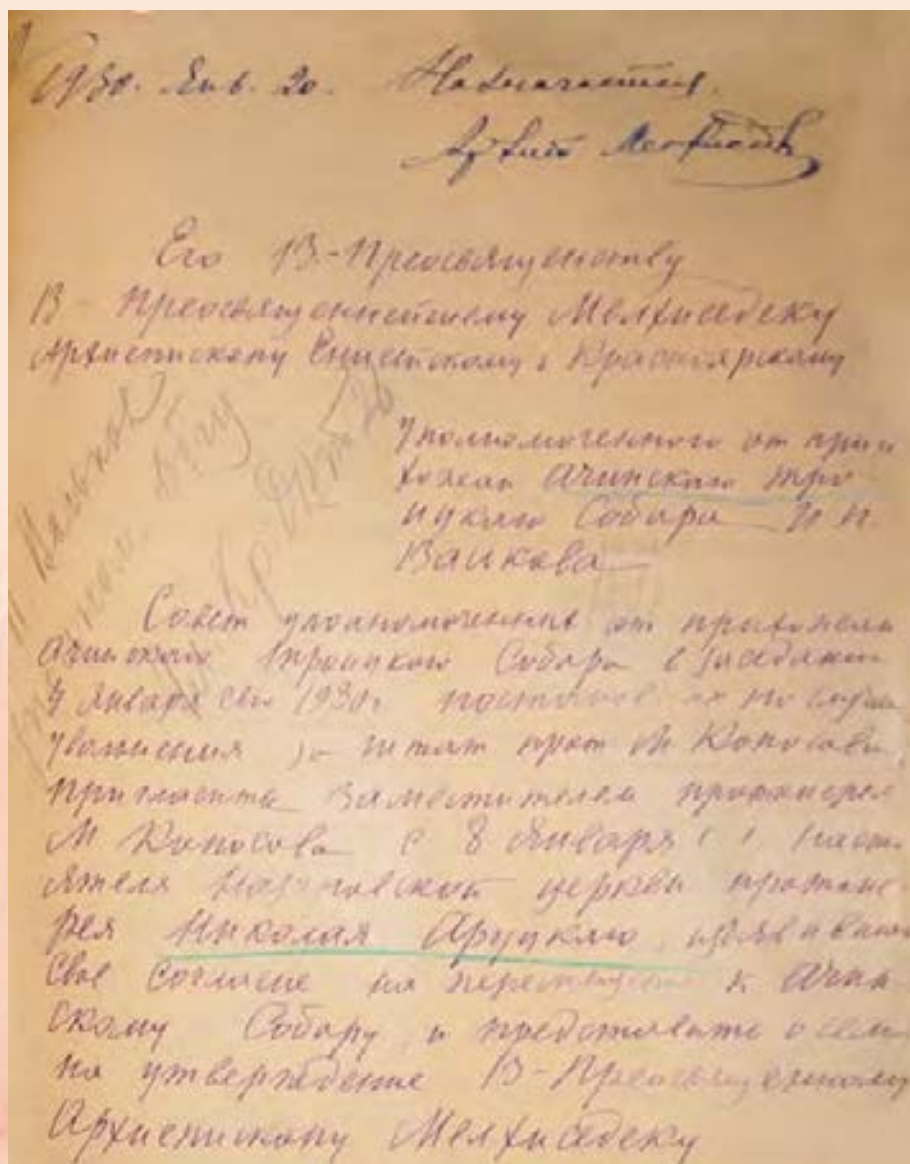 1930. Янв. 20. Назначается.
Архиеп Мелхиседек
Его В-Преосвященству
В-Преосвященнейшему Мелхиседеку
Архиепископу Енисейскому и Красноярскому
Уполномоченного от при
хожан Ачинского Тро
ицкого Собора И. Н.
Ваикова
Совет уполномоченных от прихожан
Ачинского Троицкого Собора в заседании
4 Января сего 1930 г. на случай
увольнения за штат прот М Колосова,
пригласить заместителем протоиерея
М Колосова с 8 Января насто
ятеля Назаровской церкви протоие-
рея Николая Аруцкаю, изъявившего
свое согласие на к Ачин-
скому Собору и представить о сем
на утверждение В-Преосвященному
Архиепископу Мелхиседеку